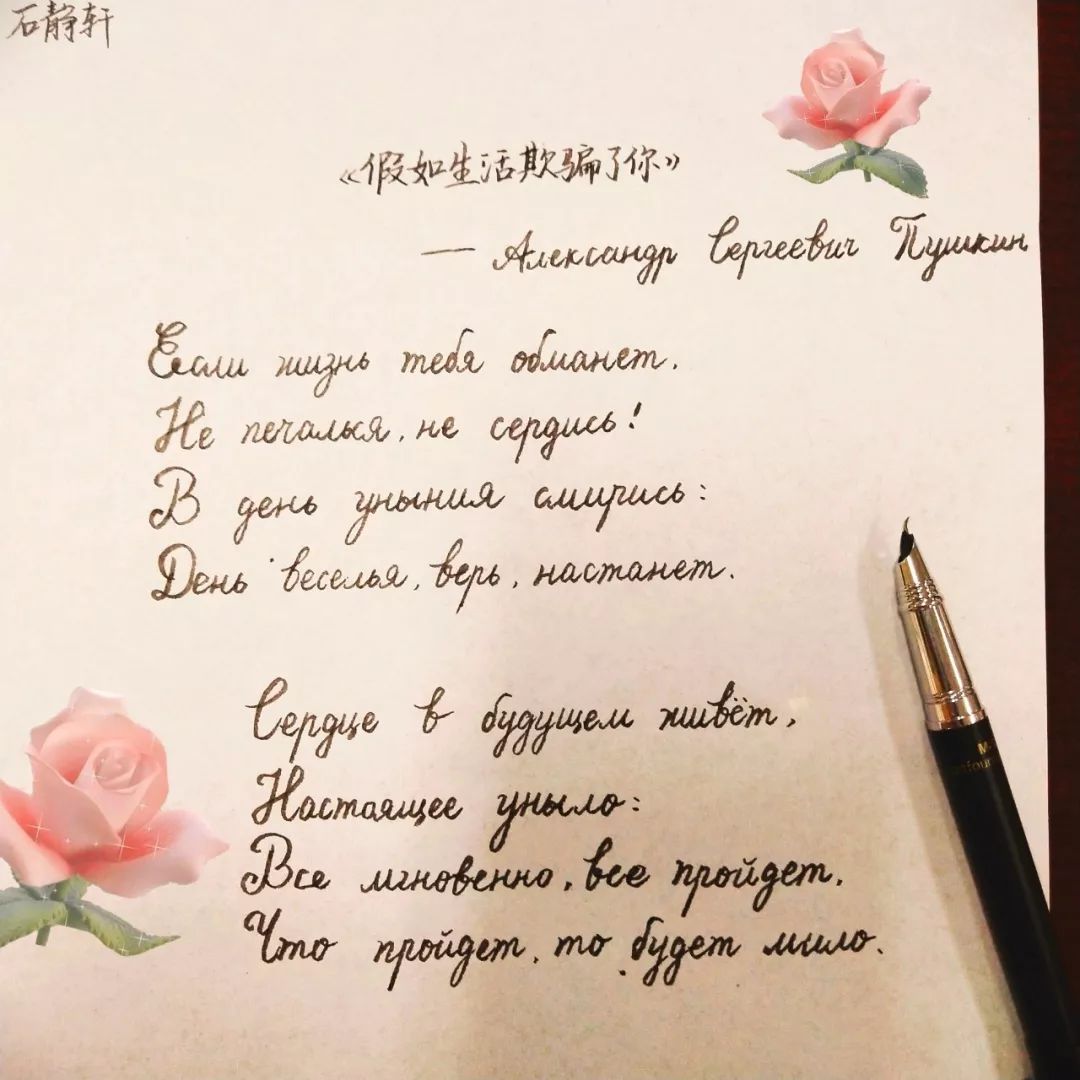 石静轩
《假如生活欺骗了你》
— Александр Сергеевич Пушкин
Если жизнь тебя обманет,
Не печалься, не сердись!
В день уныния смирись:
День веселья, верь, настанет.
Сердце в будущем живёт,
Настоящее уныло:
Все мгновенно, все пройдет,
Что пройдет, то будет мило.